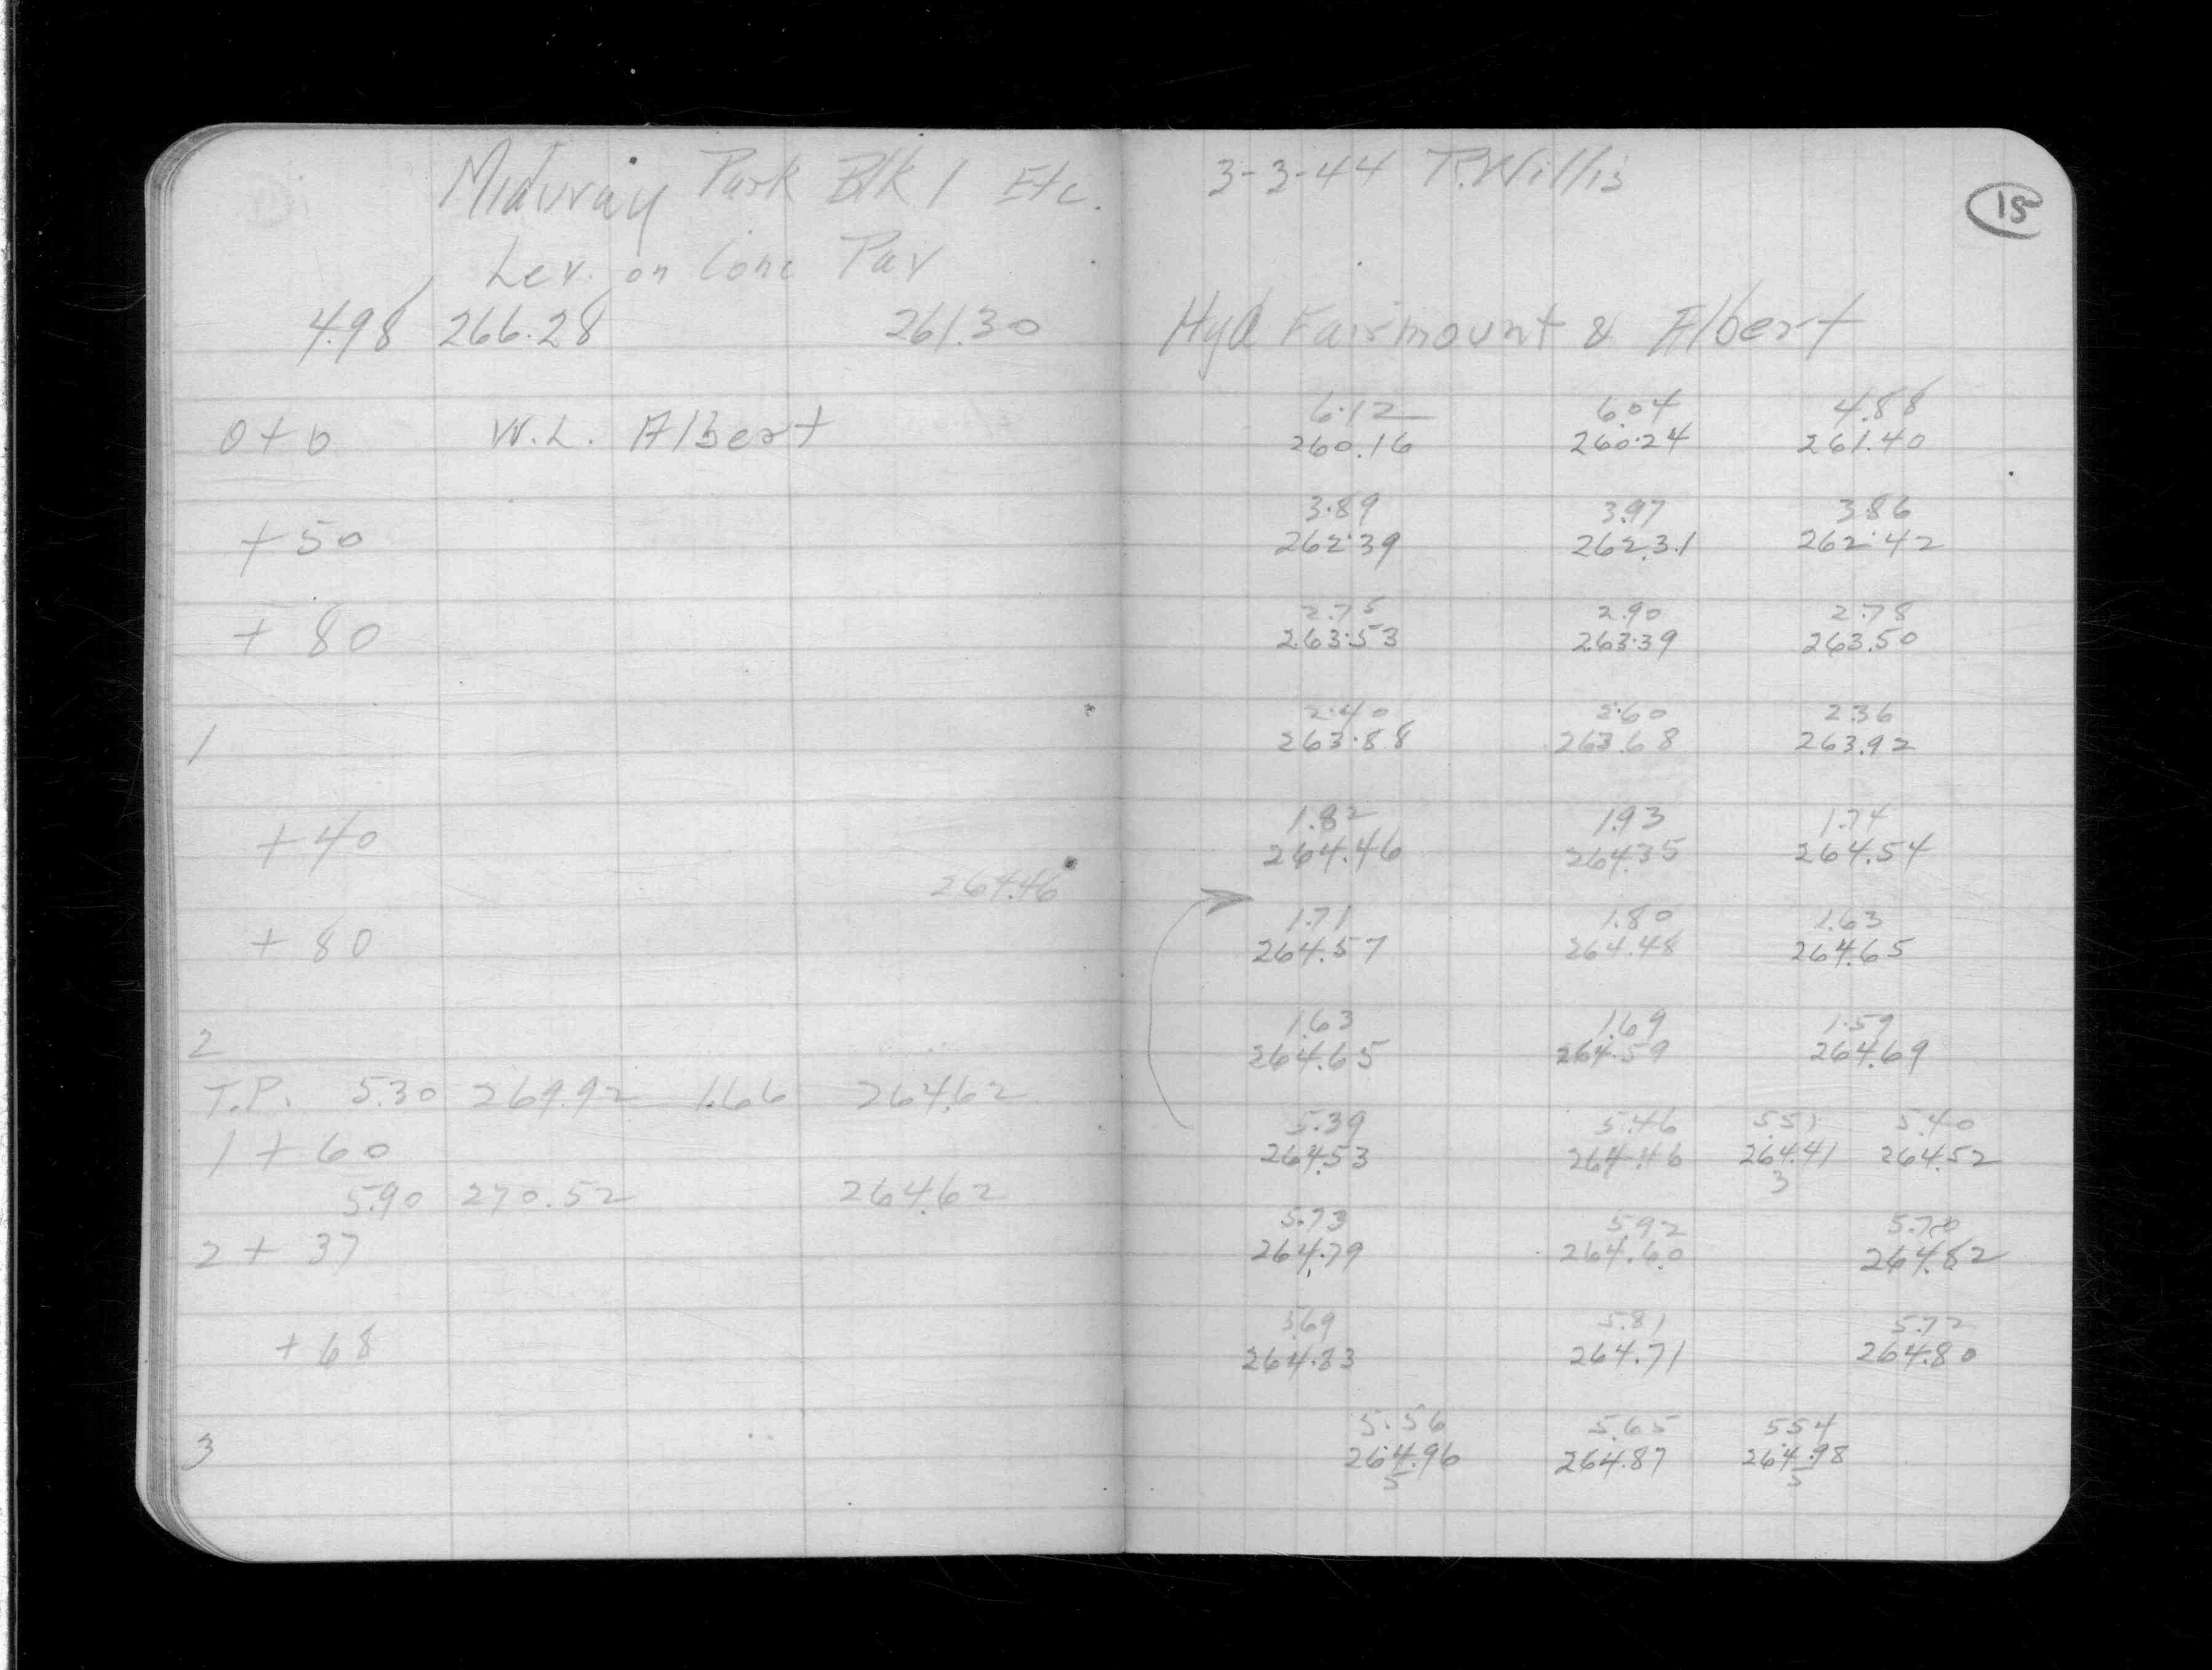 Midway Park Blk 1 Etc.
3-3-44 P. Willis
15
Lev. on Conc Pav
4.98 266.28 261.30 Hyd Fairmount & Albert
6.12 6.04 4.88
0+0 W.L. Albert 260.16 260.24 261.40
3.89 3.97 3.86
+50 262.39 262.31 262.42
2.75 2.90 2.78
+80 263.53 263.39 263.50
2.40 2.60 2.36
1 263.88 263.68 263.92
1.82 1.93 1.74
+40 264.46 264.35 264.54
264.46
1.71 1.80 1.63
+80 264.57 264.48 264.65
1.63 1.69 1.59
2 264.65 264.59 264.69
T.P. 5.30 269.92 1.66 264.62
5.39 5.46 5.51 5.40
1+60 264.53 264.46 264.41 264.52
3
5.90 270.52 264.62
5.73 5.92 5.70
2+37 264.79 264.60 264.82
5.69 5.81 5.72
+68 264.83 264.71 264.80
5.56 5.65 5.54
3 264.96 264.87 264.98
5 5